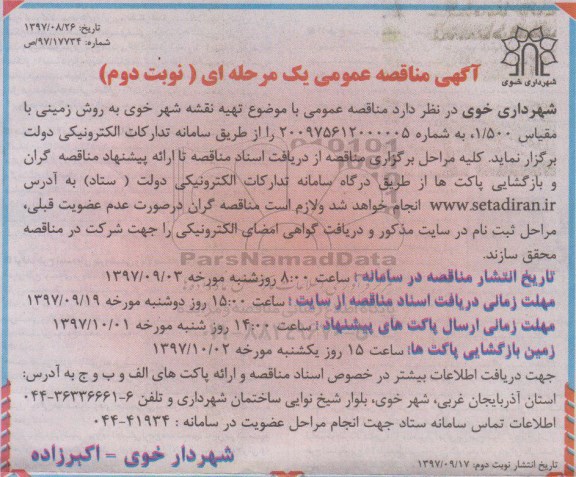 تاریخ: ۱۳۹۷/۰۸/۲۶
شماره: ۹۷/۱۷۷۳۴/ص
شهرداری خوی
آگهی مناقصه عمومی یک مرحله ای ( نوبت دوم)
شهرداری خوی در نظر دارد مناقصه عمومی با موضوع تهیه نقشه شهر خوی به روش زمینی با
مقیاس ۱/۵۰۰، به شماره ۲۰۰۹۷۵۶۱۲۰۰۰۰۰۵ را از طریق سامانه تدارکات الکترونیکی دولت
برگزار نماید. کلیه مراحل برگزاری مناقصه از دریافت اسناد مناقصه تا ارائه پیشنهاد مناقصه گران
و بازگشایی پاکت ها از طریق درگاه سامانه تدارکات الکترونیکی دولت ( ستاد) به آدرس
www.setadiran.ir انجام خواهد شد ولازم است مناقصه گران درصورت عدم عضویت قبلی،
مراحل ثبت نام در سایت مذکور و دریافت گواهی امضای الکترونیکی را جهت شرکت در مناقصه
محقق سازند.
ParsNamadData
تاریخ انتشار مناقصه در سامانه : ساعت ۸:۰۰ روزشنبه مورخه ۱۳۹۷/۰۹/۰۳
مهلت زمانی دریافت اسناد مناقصه از سایت : ساعت ۱۵:۰۰ روز دوشنبه مورخه ۱۳۹۷/۰۹/۱۹
مهلت زمانی ارسال پاکت های پیشنهاد : ساعت ۱۴:۰۰ روز شنبه مورخه ۱۳۹۷/۱۰/۰۱
زمین بازگشایی پاکت ها: ساعت ۱۵ روز یکشنبه مورخه ۱۳۹۷/۱۰/۰۲
جهت دریافت اطلاعات بیشتر در خصوص اسناد مناقصه و ارائه پاکت های الف و ب و ج به آدرس:
استان آذربایجان غربی، شهر خوی، بلوار شیخ نوایی ساختمان شهرداری و تلفن ۶-۳۶۳۳۶۶۶۱-۰۴۴
اطلاعات تماس سامانه ستاد جهت انجام مراحل عضویت در سامانه : ۴۱۹۳۴-۰۴۴
شهردار خوی = اکبرزاده
تاریخ انتشار نوبت دوم: ۱۳۹۷/۰۹/۱۷